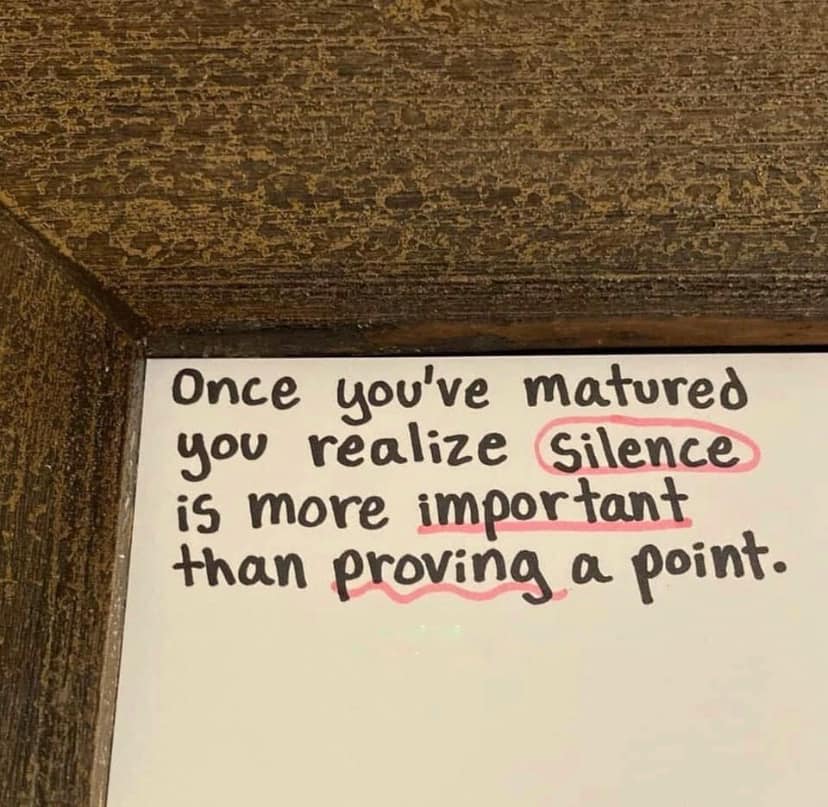 Once you've matured
you realize silence
is more important
than proving a point.